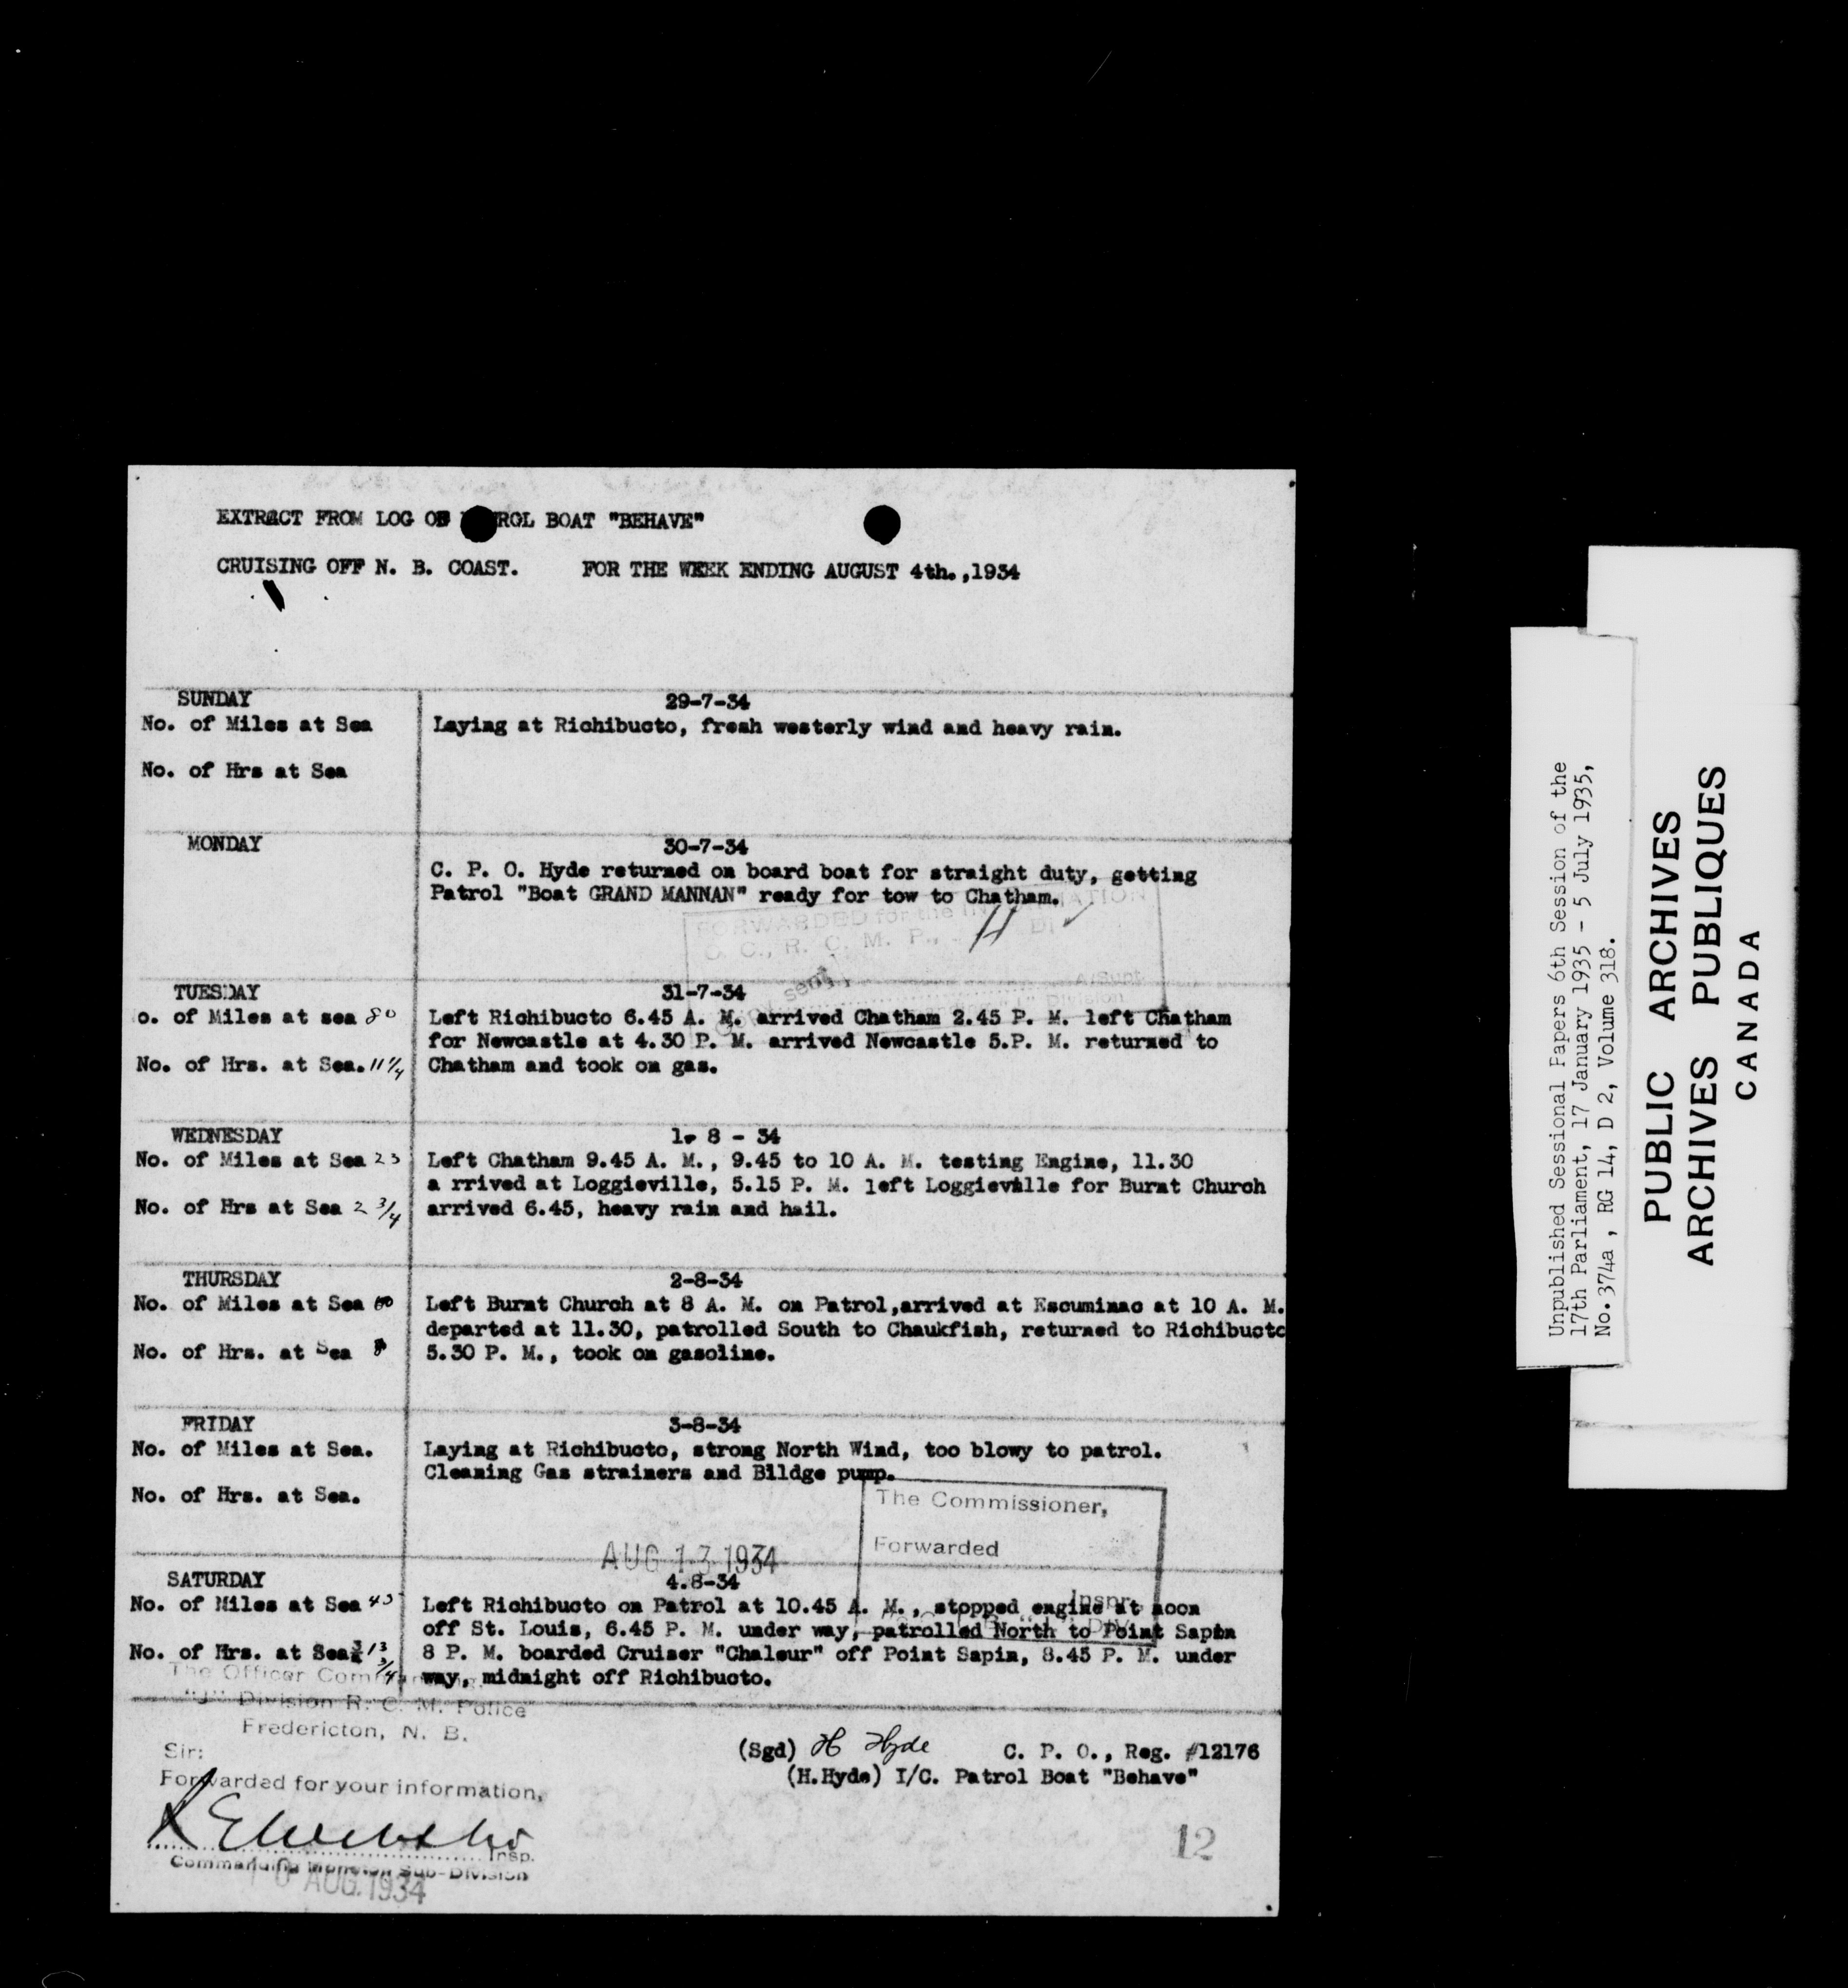 EXTRACT FROM LOG OF ROL BOAT "BEHAVE"
CRUISING OFF N. B. COAST. FOR THE WEEK ENDING AUGUST 4th.,1934
SUNDAY 29-7-34
No. of Miles at Sea Laying at Richibucto, fresh westerly wind and heavy rain.
No. of Hrs at Sea
MONDAY 30-7-34
C. P. O. Hyde returned on board boat for straight duty, getting
Patrol "Boat GRAND MANNAN" ready for tow to Chatham.
FORWARDED for the INFORMATION
O. C., R. C. M. P., H DI
sent
A/Supt.
Division
TUESDAY 31-7-34
o. of Miles at sea 80 Left Richibucto 6.45 A. M. arrived Chatham 2.45 P. M. left Chatham
for Newcastle at 4.30 P. M. arrived Newcastle 5.P. M. returned to
No. of Hrs. at Sea. 11 1/4 Chatham and took on gas.
WEDNESDAY 1- 8 - 34
No. of Miles at Sea 23 Left Chatham 9.45 A. M., 9.45 to 10 A. M. testing Engine, 11.30
a rrived at Loggieville, 5.15 P. M. left Loggieville for Burnt Church
No. of Hrs at Sea 2 3/4 arrived 6.45, heavy rain and hail.
THURSDAY 2-8-34
No. of Miles at Sea 60 Left Burnt Church at 8 A. M. on Patrol,arrived at Escuminac at 10 A. M.
departed at 11.30, patrolled South to Chaukfish, returned to Richibucto
No. of Hrs. at Sea 8 5.30 P. M., took on gasoline.
FRIDAY 3-8-34
No. of Miles at Sea. Laying at Richibucto, strong North Wind, too blowy to patrol.
Cleaning Gas strainers and Bildge pump.
No. of Hrs. at Sea.
The Commissioner,
Forwarded
AUG 13 1934
Inspr.
SATURDAY 4.8-34
No. of Miles at Sea 45 Left Richibucto on Patrol at 10.45 A. M., stopped engine at noon
off St. Louis, 6.45 P. M. under way, patrolled North to Point Sapin
No. of Hrs. at Sea 13 1/4 8 P. M. boarded Cruiser "Chaleur" off Point Sapin, 8.45 P. M. under
way, midnight off Richibucto.
The Officer Commanding
"J" Division R. C. M. Police
Fredericton, N. B.
Sir:
Forwarded for your information,
Insp.
Commanding Moncton Sub-Division
10 AUG. 1934
(Sgd) H Hyde C. P. O., Reg. #12176
(H.Hyde) I/C. Patrol Boat "Behave"
12
Unpublished Sessional Papers 6th Session of the
17th Parliament, 17 January 1935 - 5 July 1935,
No.374a , RG 14, D 2, Volume 318.
PUBLIC ARCHIVES
ARCHIVES PUBLIQUES
CANADA